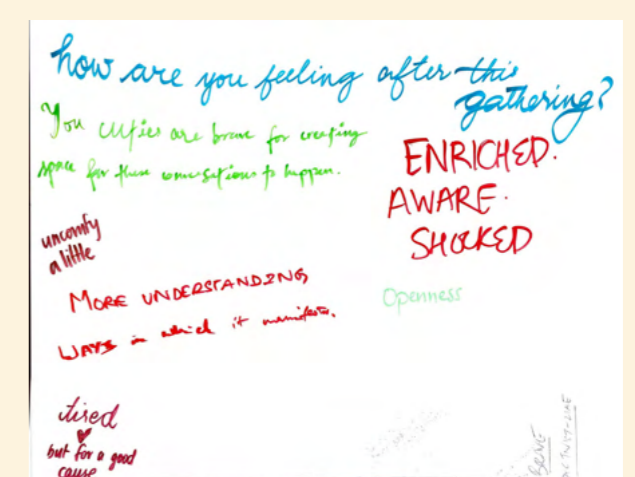 how are you feeling after this
gathering?
You cuties are brave for creating
space for these conversations to happen.
ENRICHED.
AWARE.
SHOCKED
uncomfy
a little
MORE UNDERSTANDING
WAYS in which it manifests.
Openness
tired
but for a good
cause
BRAVE